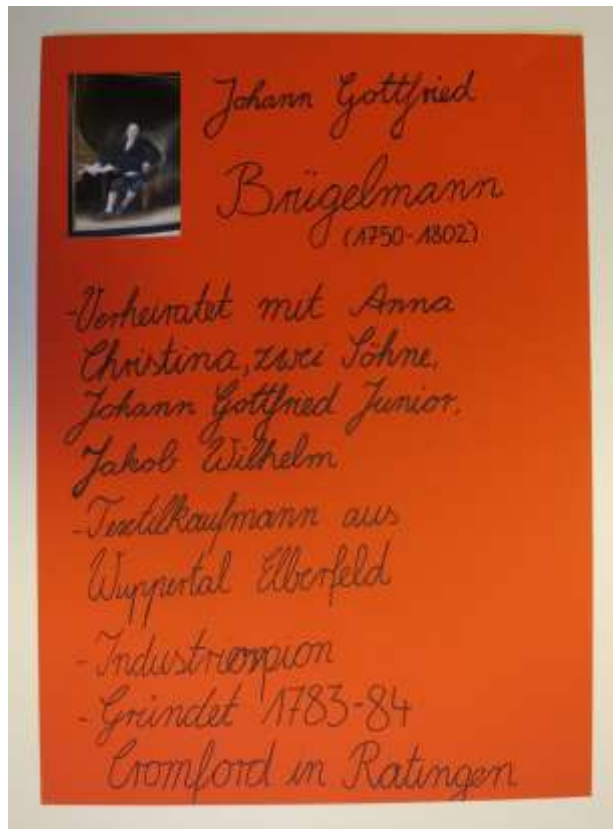 Johann Gottfried
Brügelmann
(1750-1802)
-Verheiratet mit Anna
Christina, zwei Söhne,
Johann Gottfried Junior,
Jakob Wilhelm
-Textilkaufmann aus
Wuppertal Elberfeld
-Industriespion
-Gründet 1783-84
Cromford in Ratingen